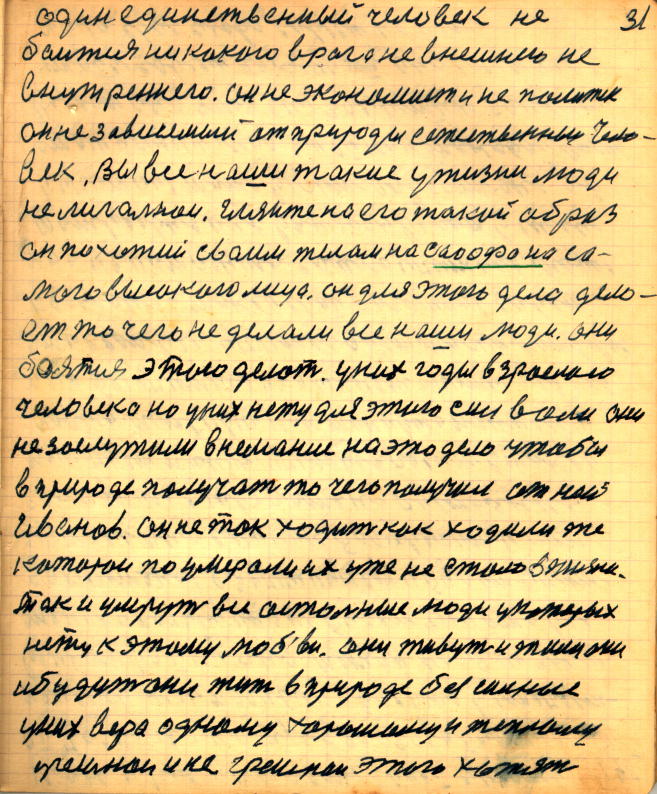 один единственный человек не 31
боится никокого врага не внешнего не
внутреннего. он не экономист и не политик
он не зависемый от природы естественный чело-
век, Вы все наши такие у жизни люди
не лигалнои. Гляньте на его такой образ
он похожий своим телам на саоофона са-
мого высокого лица. он для этого дела дело-
ет то чего не делали все наши люди. они
боятся этого делат. у них годы взрослого
человека но у них нету для этого сил воли они
не заслужили внемание на это дело чтобы
в природе получат то чего получил от ней
Иванов. он не так ходит как ходили те
каторои поумерали их уже не стало в жизни.
так и умрут все остольные люди у каторых
нету к этому любви. они живут и этим они
и будут они жит в природе безсилные
у них вера одному хорошому и теплому
грешнои и не грешнои этого хотят